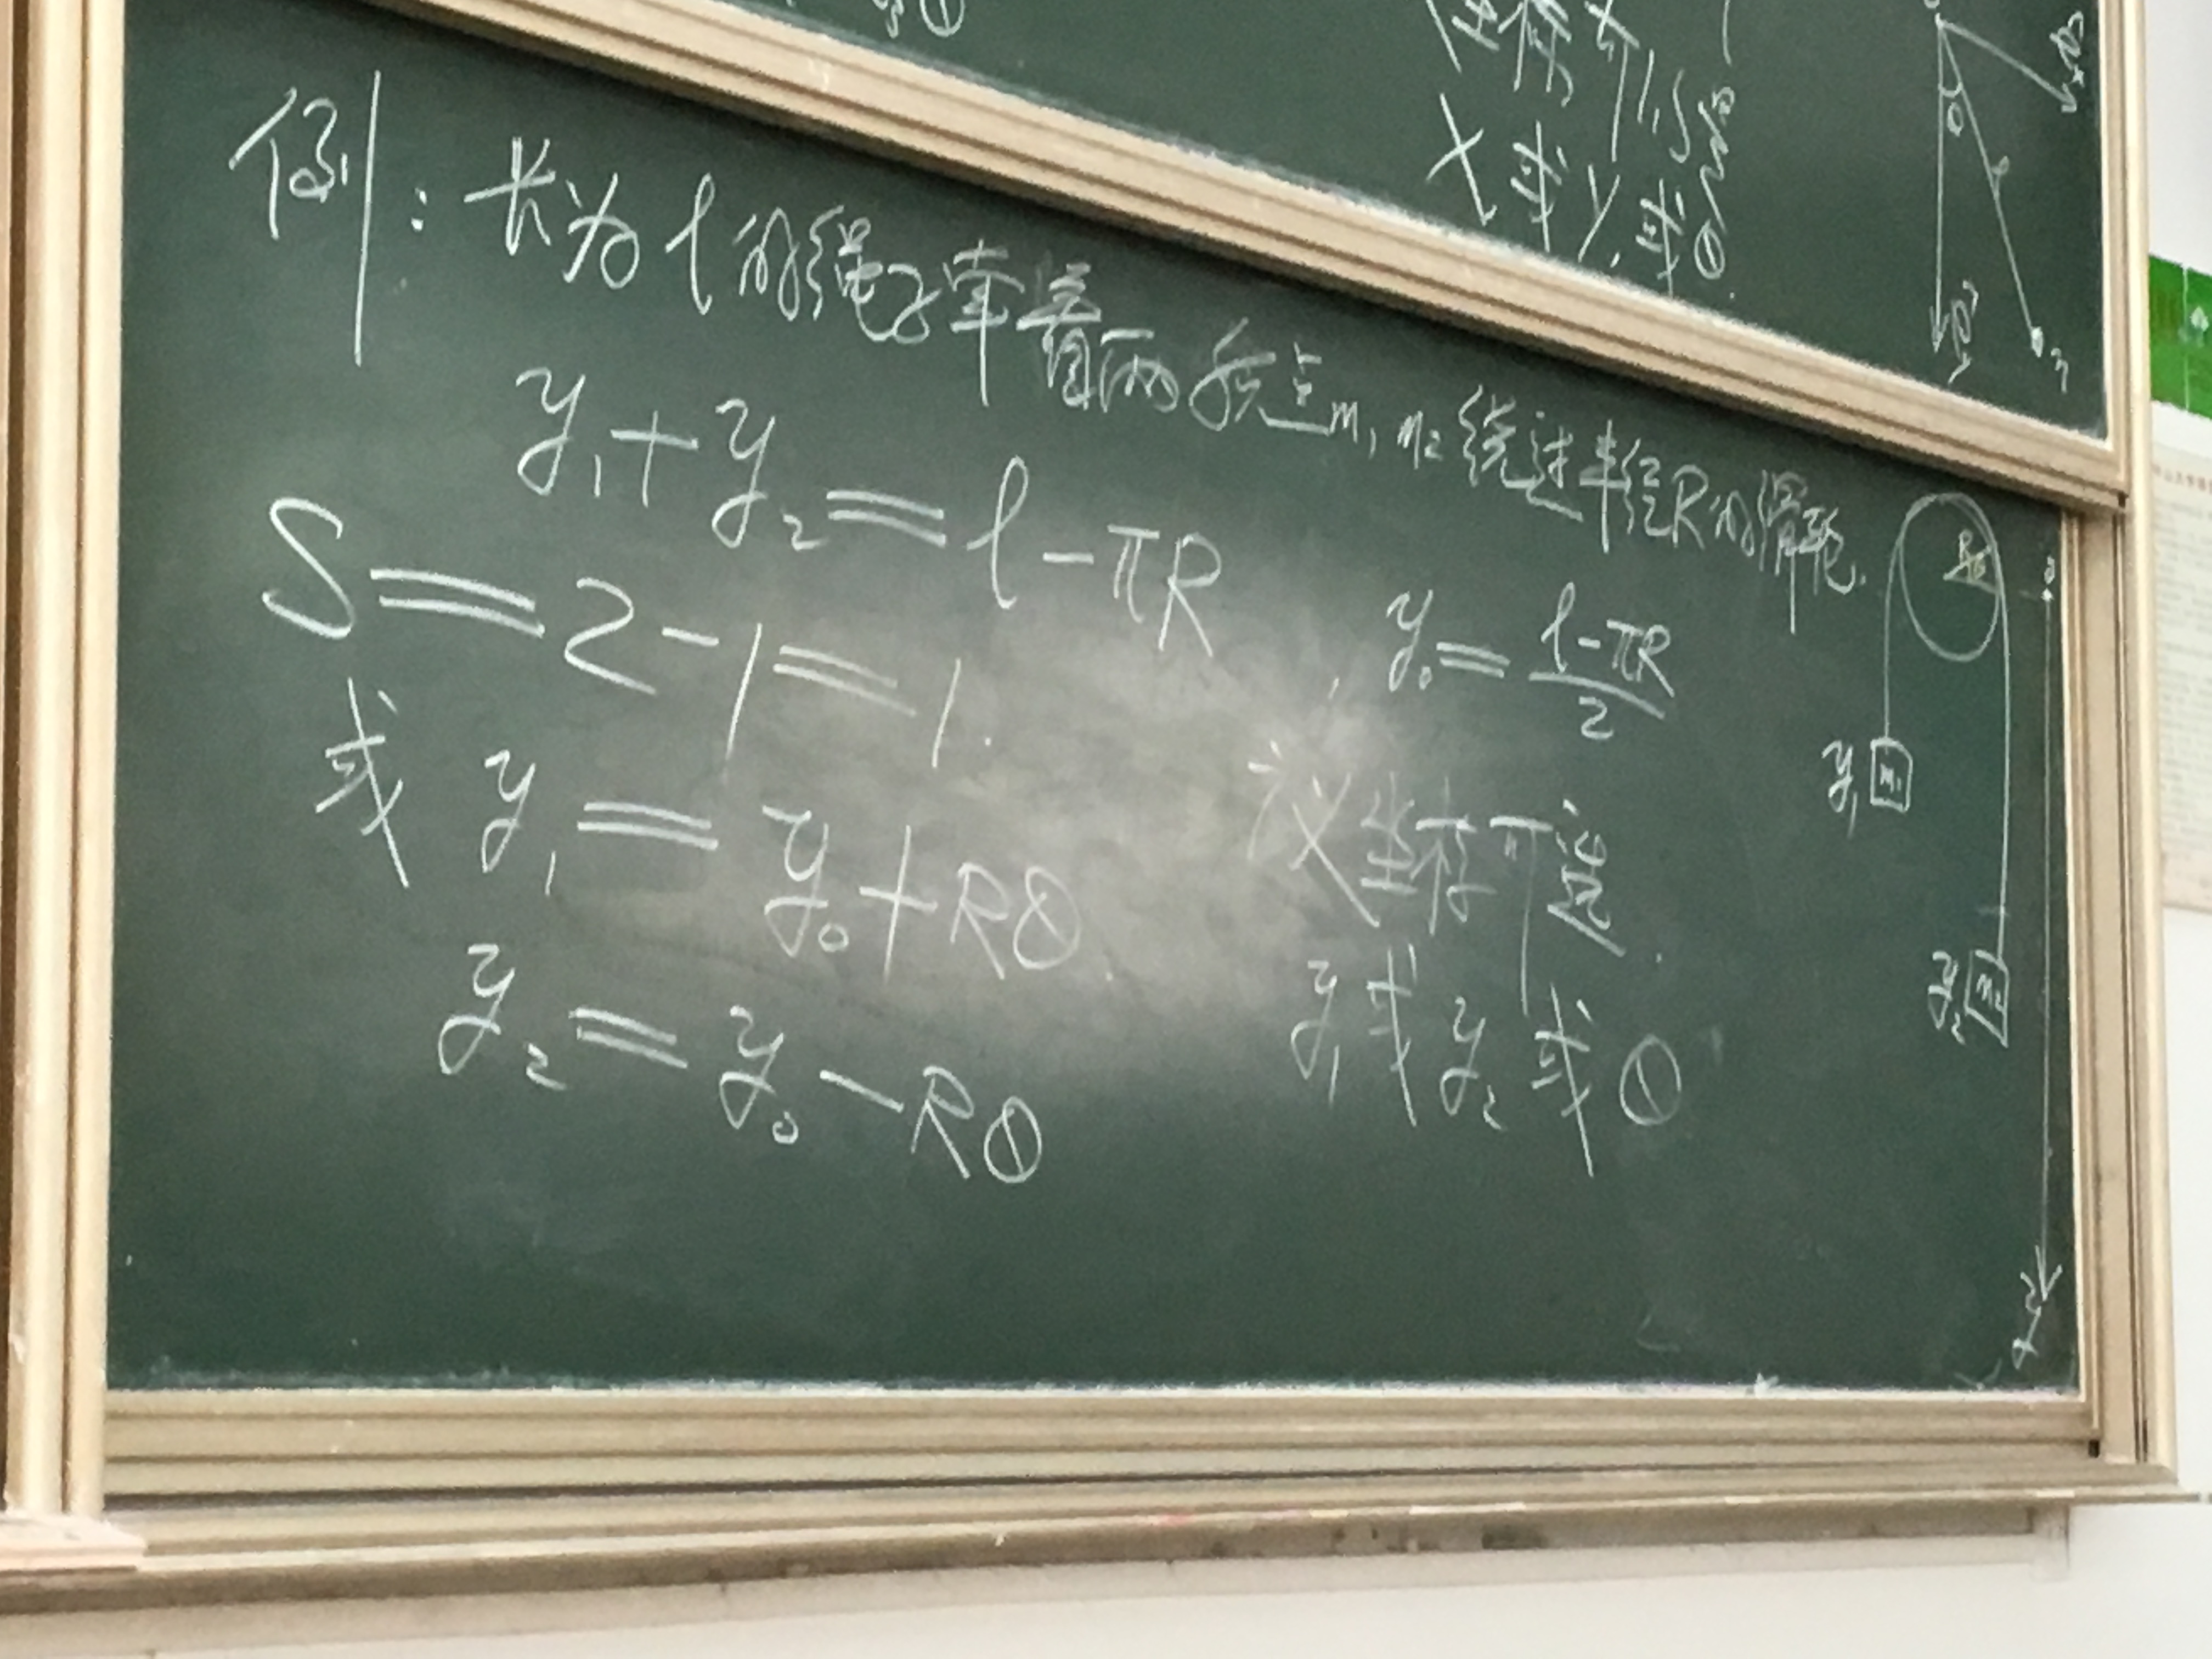 坐标可以选
x 或 y 或 θ
例: 长为 l 的绳子牵着两质点 m₁ m₂ 绕过半径R的滑轮.
y₁+y₂=l-πR
S=2-1=1.
y₀=(l-πR)/2
或 y₁=y₀+Rθ.
y₂=y₀-Rθ
广义坐标可选.
y₁或y₂或θ
R
θ
o
y₁
m₁
y₂
m₂
y